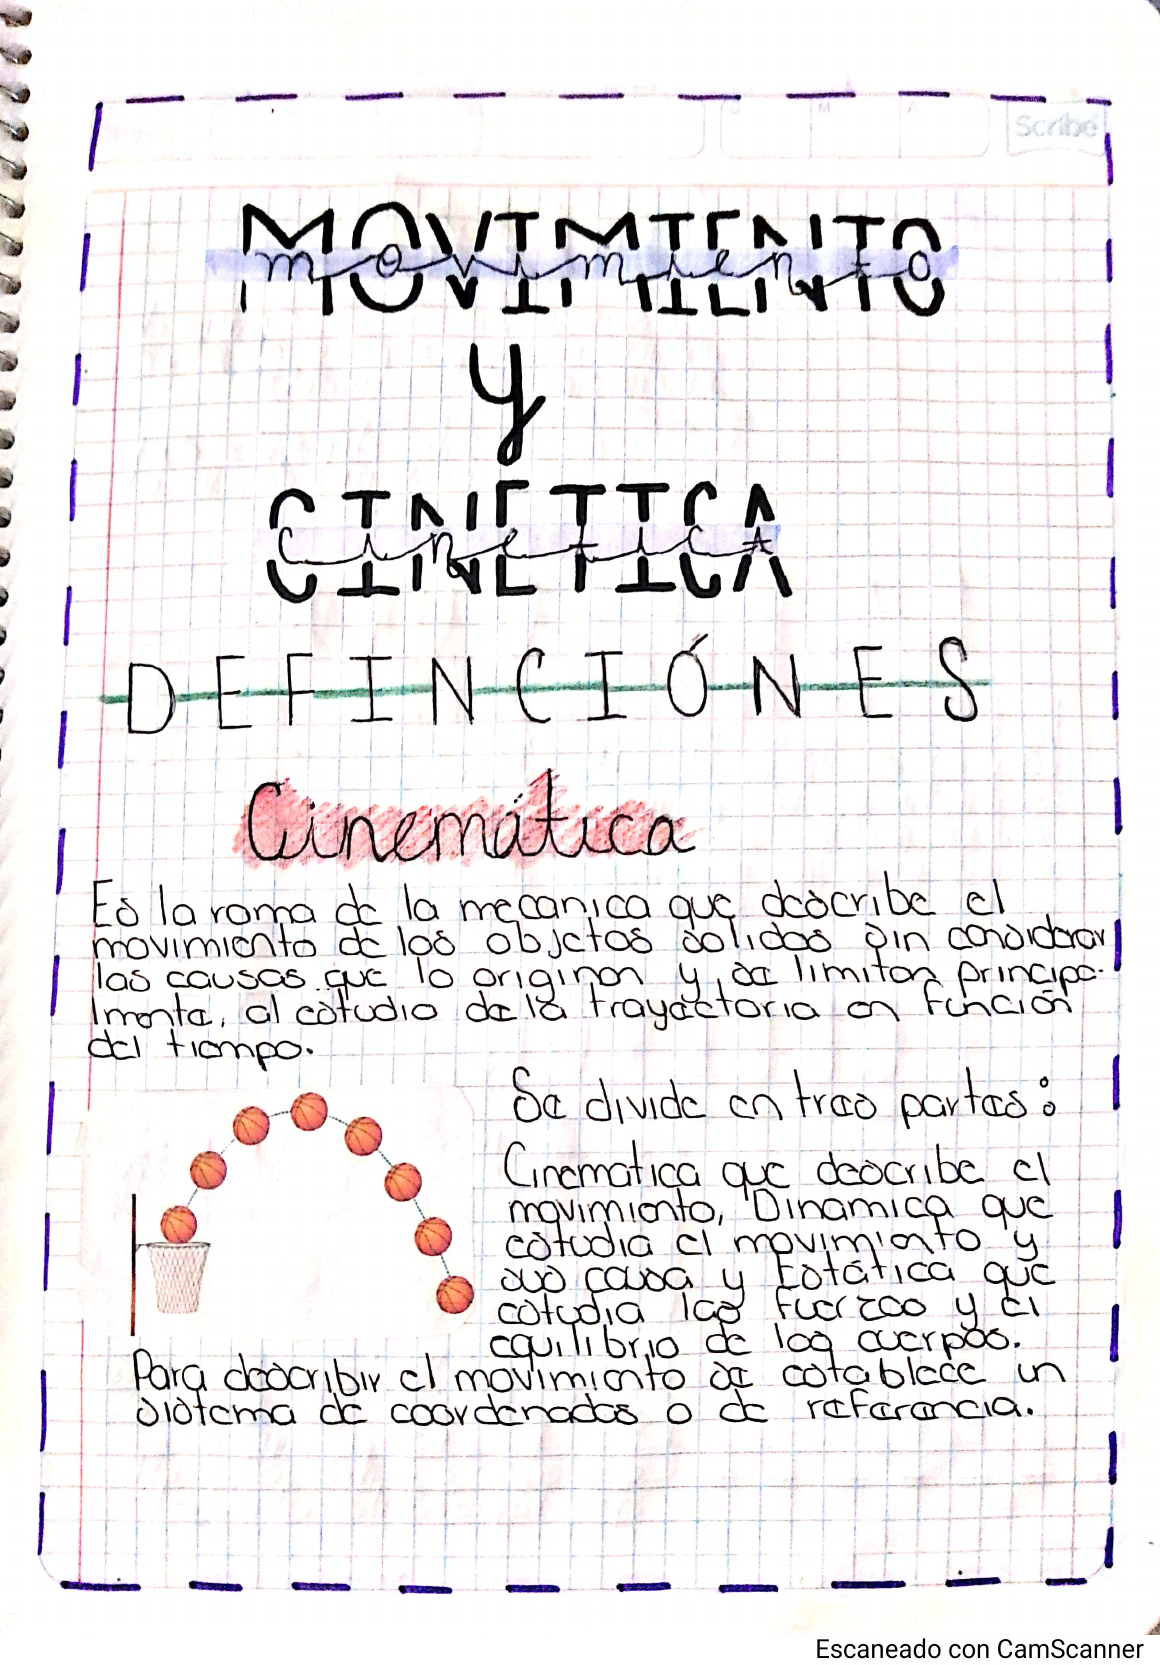 Scribe
MOVIMIENTO
movimiento
y
CINETICA
cinetica
DEFINCIÓNES
Cinemática
Es la rama de la mecanica que describe el
movimiento de los objetos solidos sin considerar
las causas que lo originan y se limitan principa-
lmente, al estudio de la trayectoria en función
del tiempo.
Se divide en tres partes:
Cinematica que describe el
movimiento, Dinamica que
estudia el movimiento y
sus causa y Estática que
estudia las fuerzas y el
equilibrio de los cuerpos.
Para describir el movimiento se establece un
sistema de coordenadas o de referencia.
Escaneado con CamScanner